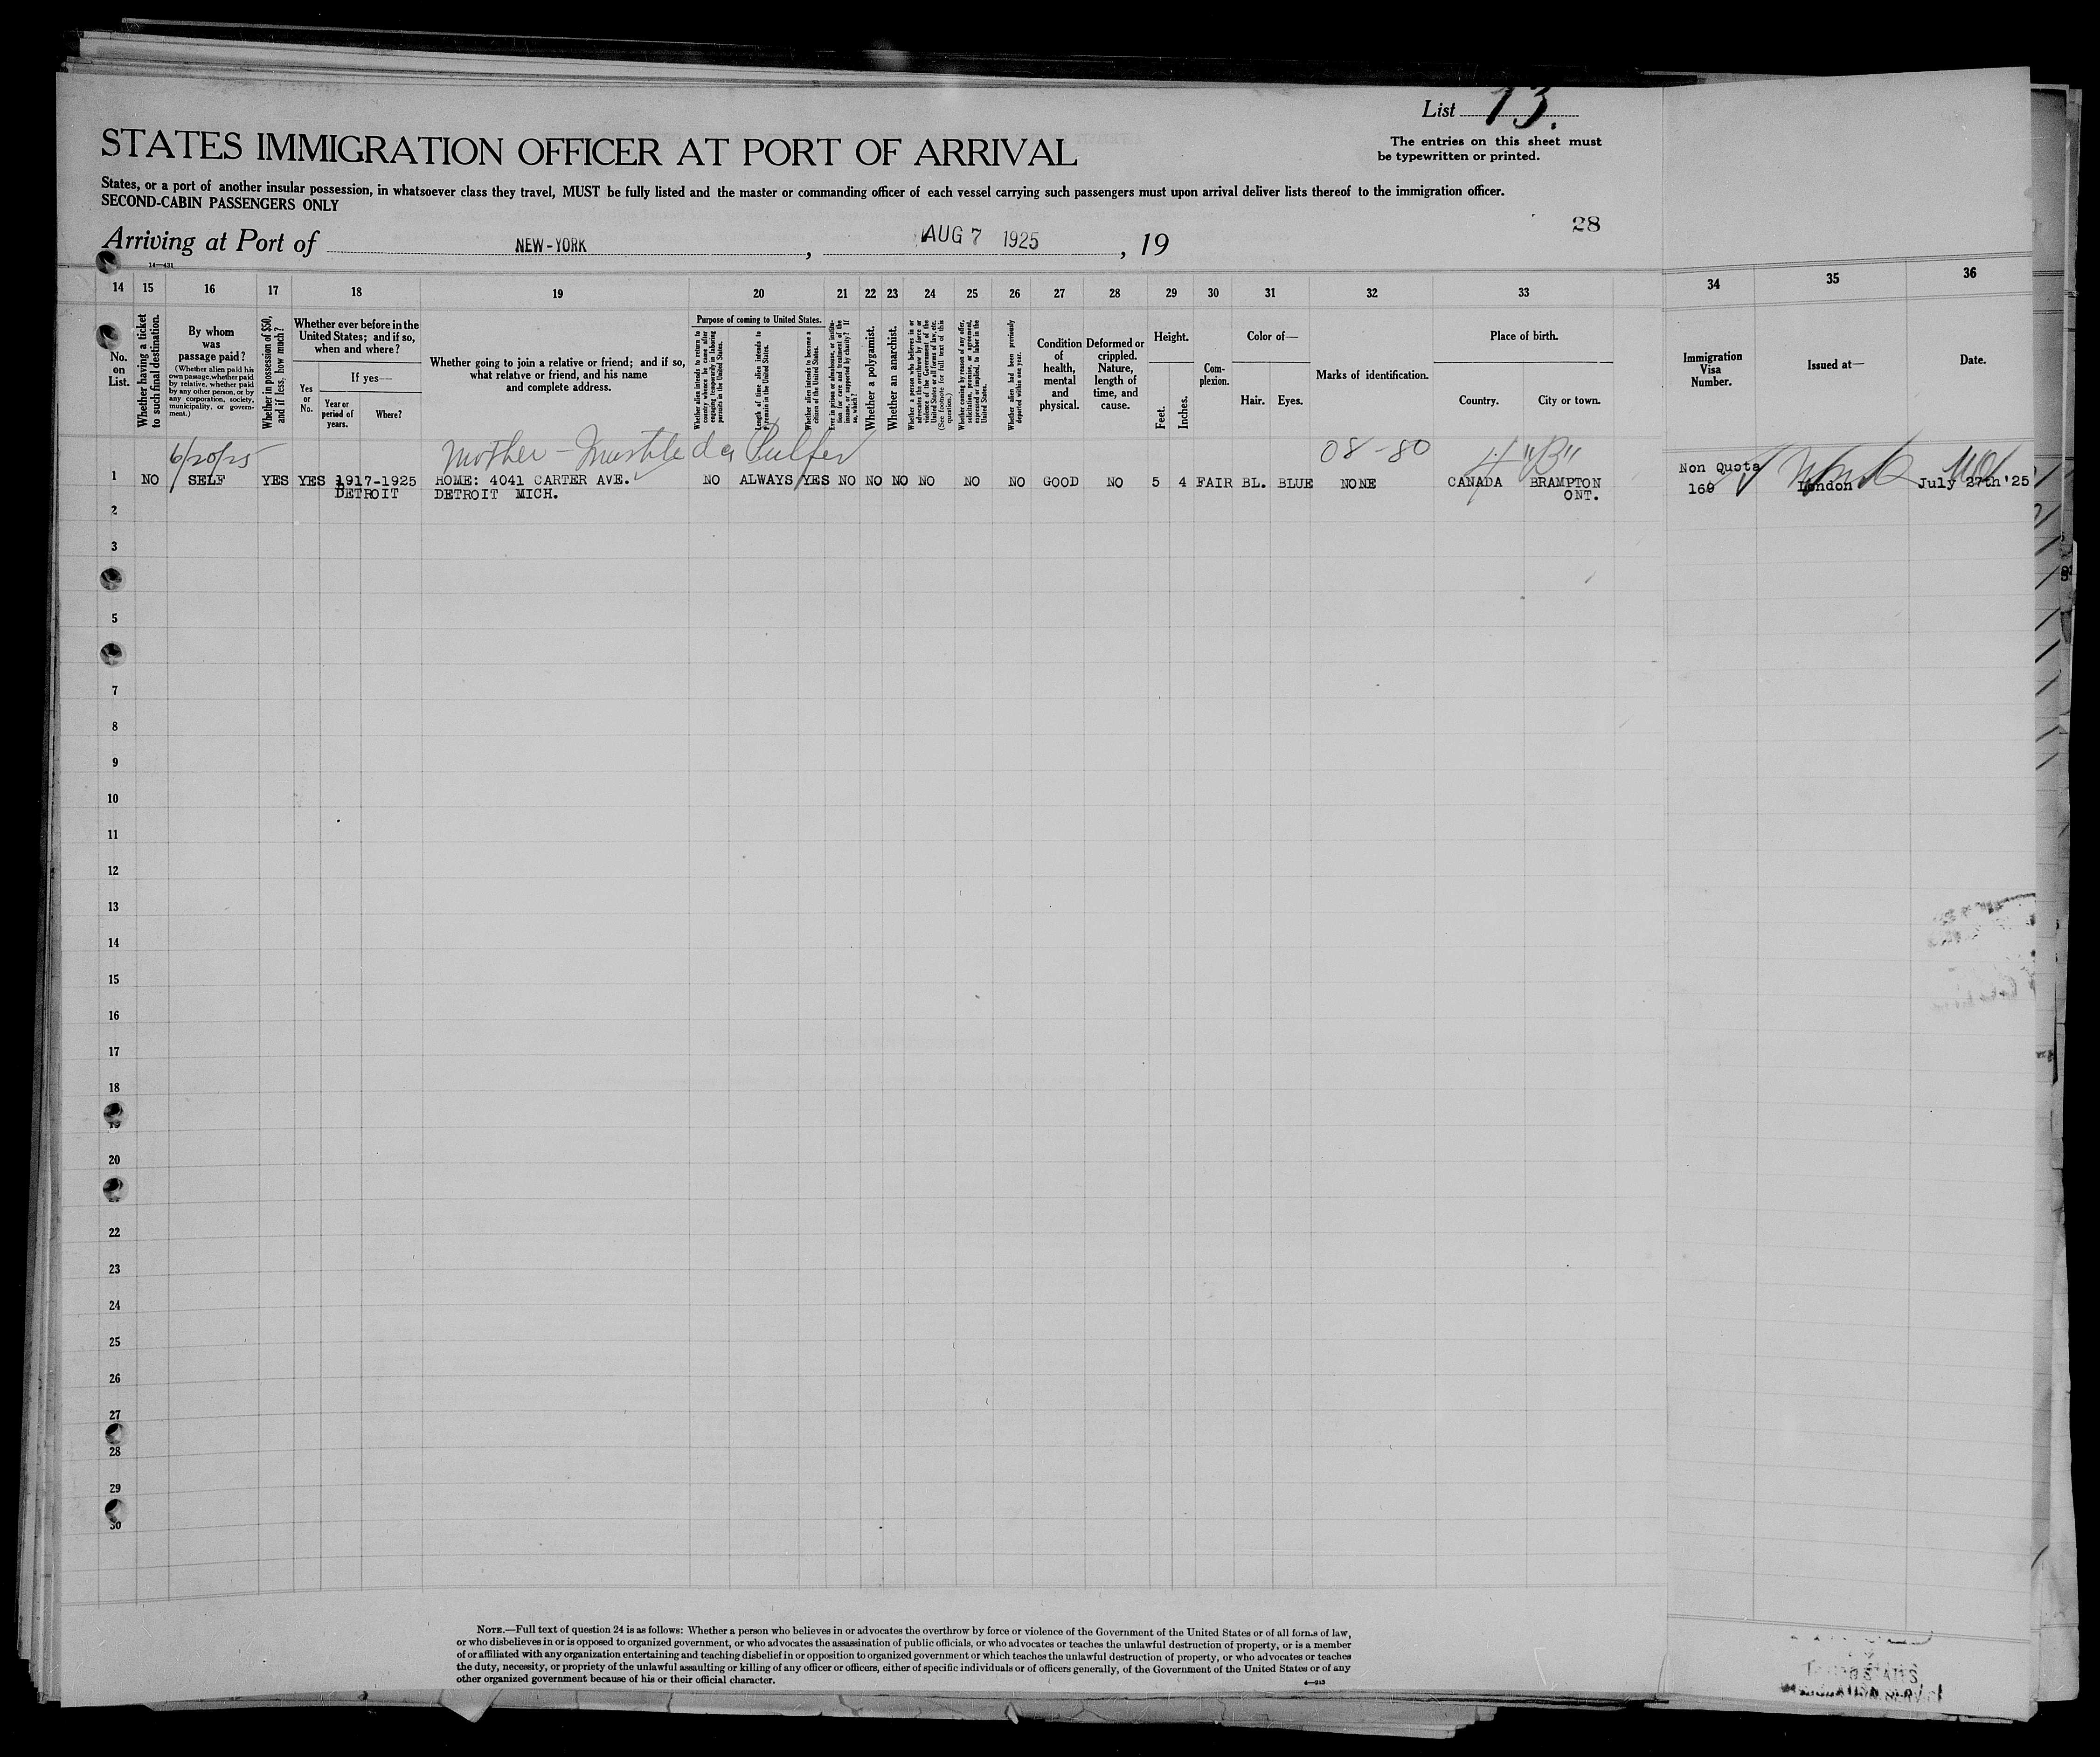 List 13.
The entries on this sheet must
be typewritten or printed.
STATES IMMIGRATION OFFICER AT PORT OF ARRIVAL
States, or a port of another insular possession, in whatsoever class they travel, MUST be fully listed and the master or commanding officer of each vessel carrying such passengers must upon arrival deliver lists thereof to the immigration officer.
SECOND-CABIN PASSENGERS ONLY
28
Arriving at Port of NEW-YORK, AUG 7 1925, 19
14—431
14 15 16 17 18 19 20 21 22 23 24 25 26 27 28 29 30 31 32 33 34 35 36
No. on List.
Whether having a ticket to such final destination.
By whom was passage paid?
(Whether alien paid his own passage, whether paid by relative, whether paid by any other person, or by any corporation, society, municipality, or government.)
Whether in possession of $50, and if less, how much?
Whether ever before in the United States; and if so, when and where?
Yes or No.
If yes—
Year or period of years.
Where?
Whether going to join a relative or friend; and if so, what relative or friend, and his name and complete address.
Purpose of coming to United States.
Whether alien intends to return to country whence he came after engaging temporarily in laboring pursuits in the United States.
Length of time alien intends to remain in the United States.
Whether alien intends to become a citizen of the United States.
Ever in prison or almshouse, or institution for care and treatment of the insane, or supported by charity? If so, which?
Whether a polygamist.
Whether an anarchist.
Whether a person who believes in or advocates the overthrow by force or violence of the Government of the United States or all forms of law, etc. (See footnote for full text of this question.)
Whether coming by reason of any offer, solicitation, promise, or agreement, expressed or implied, to labor in the United States.
Whether alien had been previously deported within one year.
Condition of health, mental and physical.
Deformed or crippled. Nature, length of time, and cause.
Height.
Feet. Inches.
Complexion.
Color of—
Hair. Eyes.
Marks of identification.
Place of birth.
Country. City or town.
Immigration Visa Number.
Issued at—
Date.
6/20/25 Mother - da Pulfer 08-80 4 "B"
1 NO SELF YES YES 1917-1925 HOME: 4041 CARTER AVE. NO ALWAYS YES NO NO NO NO NO NO GOOD NO 5 4 FAIR BL. BLUE NONE CANADA BRAMPTON Non Quota London July 27th '25
DETROIT DETROIT MICH. ONT. 169
2
3
5
7
8
9
10
11
12
13
14
15
16
17
18
19
20
22
23
24
25
26
27
28
29
30
NOTE.—Full text of question 24 is as follows: Whether a person who believes in or advocates the overthrow by force or violence of the Government of the United States or of all forms of law,
or who disbelieves in or is opposed to organized government, or who advocates the assassination of public officials, or who advocates or teaches the unlawful destruction of property, or is a member
of or affiliated with any organization entertaining and teaching disbelief in or opposition to organized government or which teaches the unlawful destruction of property, or who advocates or teaches
the duty, necessity, or propriety of the unlawful assaulting or killing of any officer or officers, either of specific individuals or of officers generally, of the Government of the United States or of any
other organized government because of his or their official character.